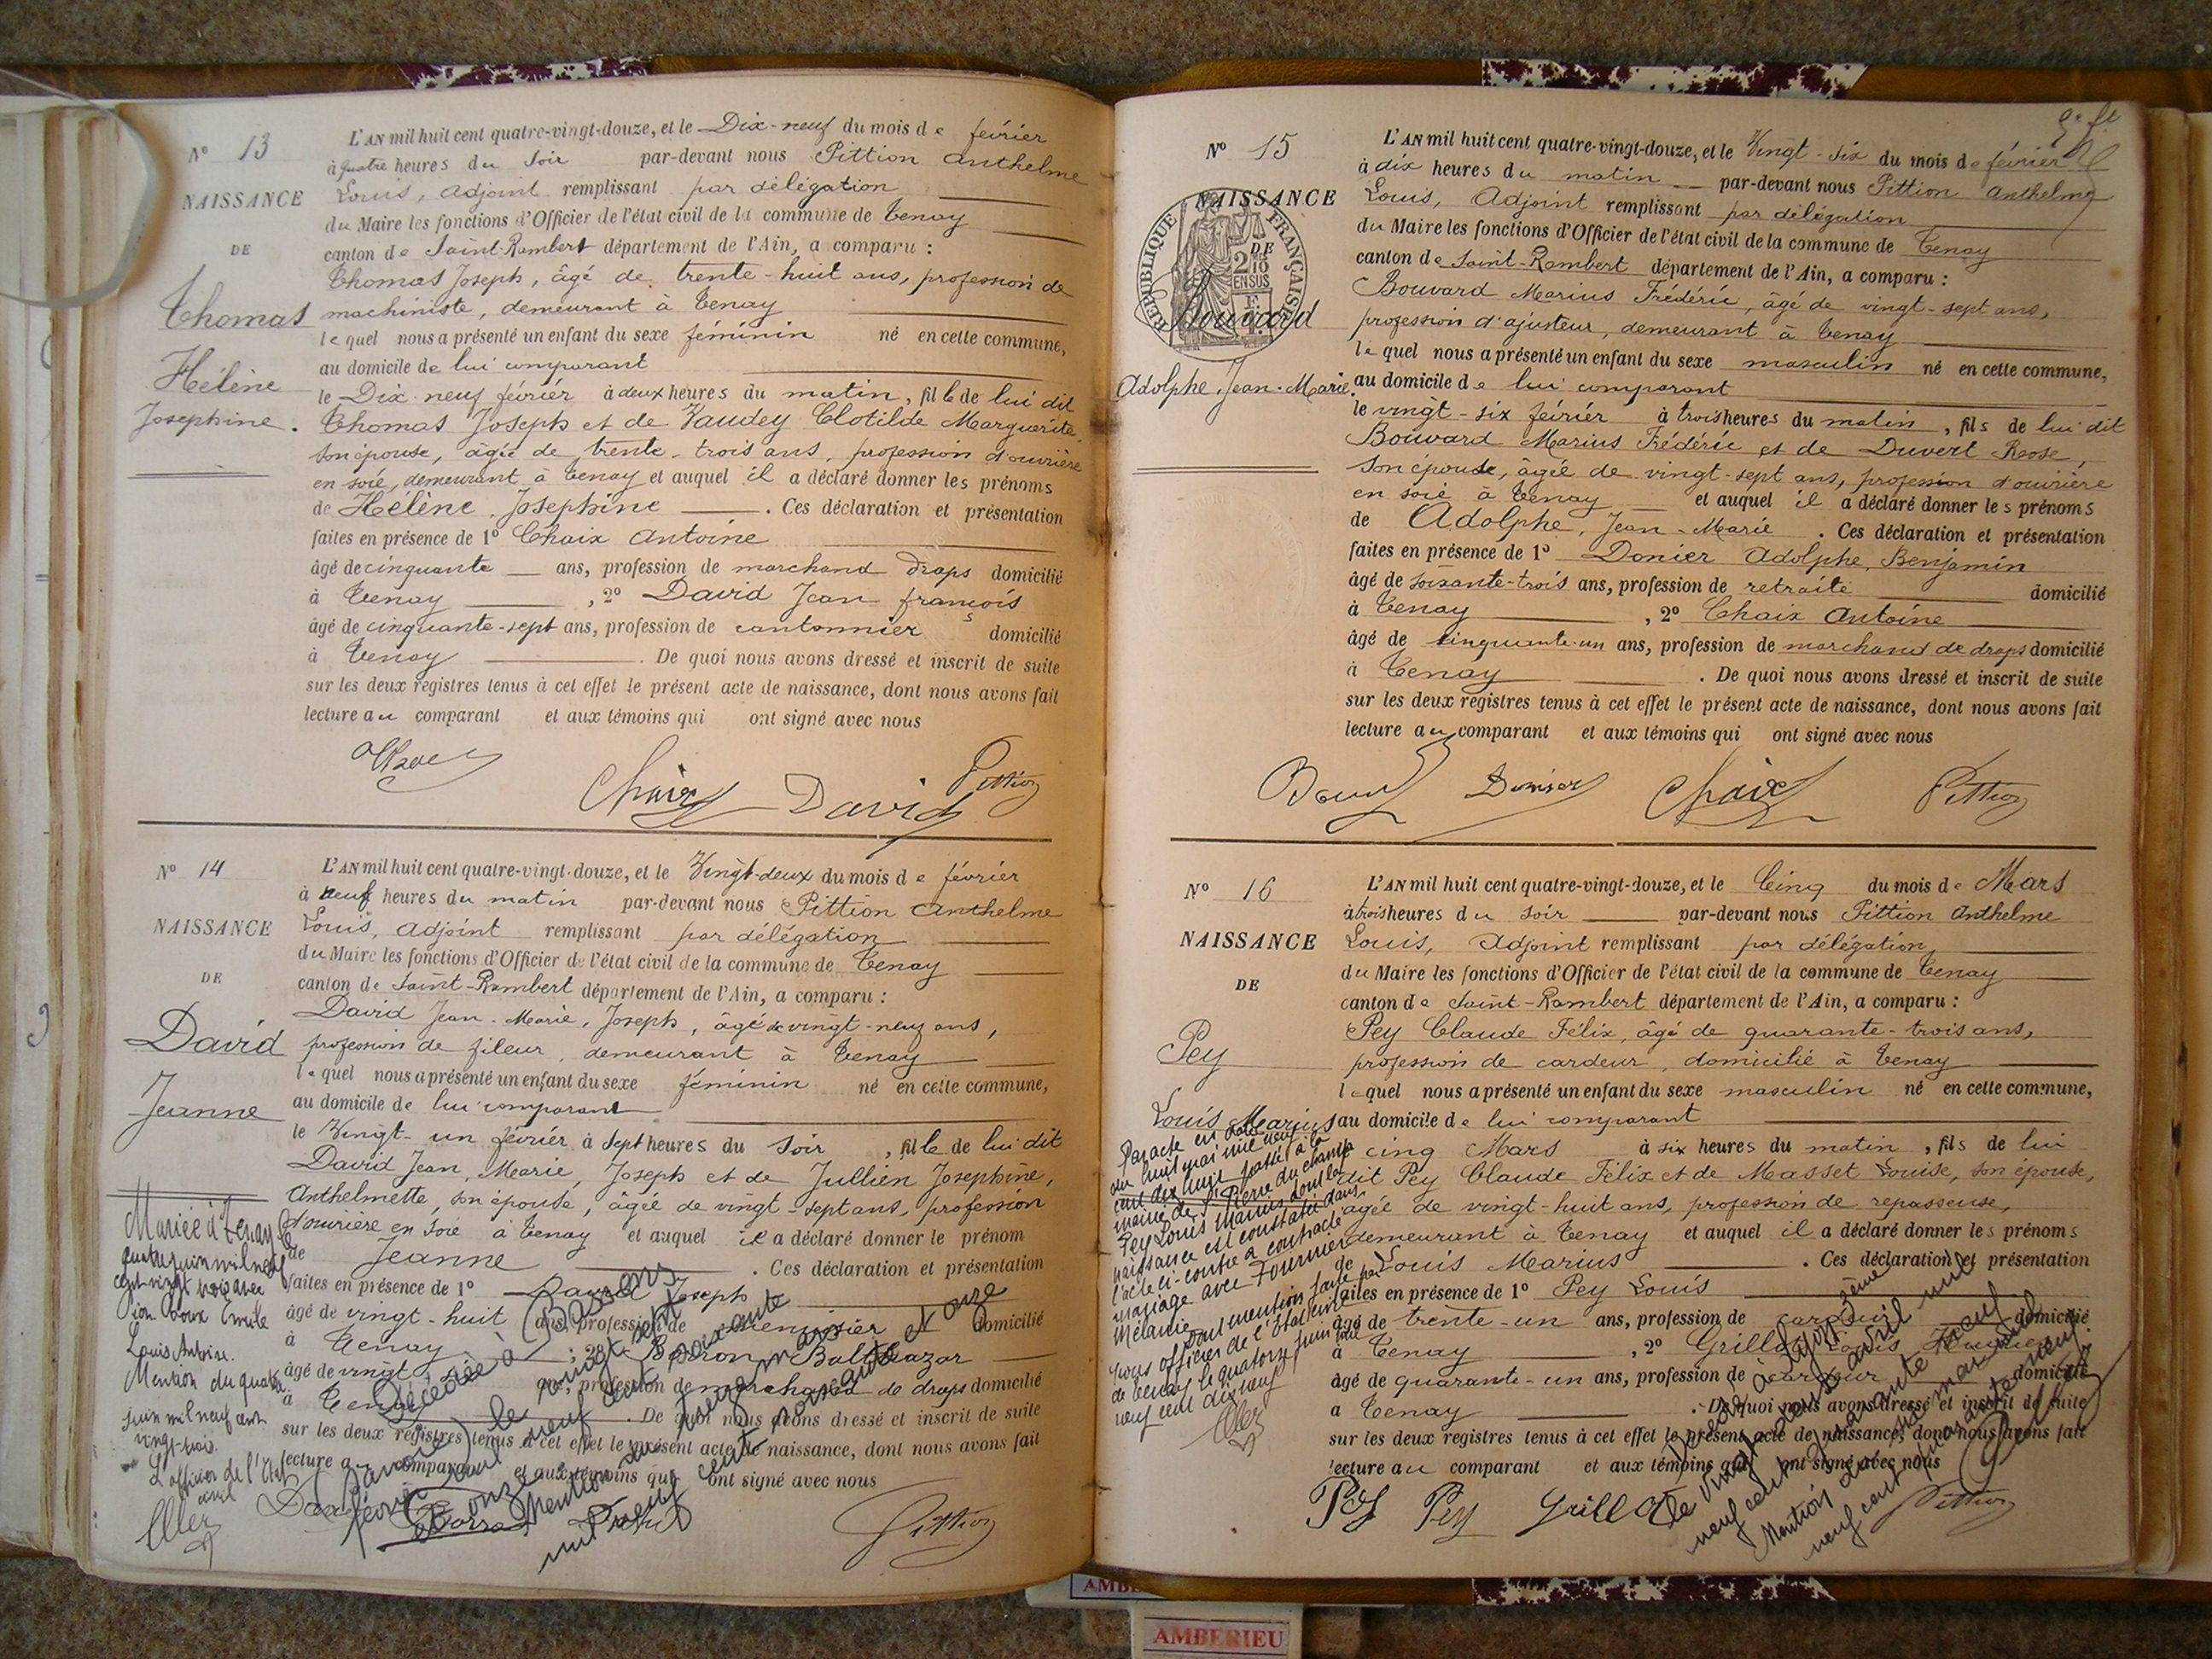 N° 13
NAISSANCE
DE
Thomas
Hélène
Josephine.
L'AN mil huit cent quatre-vingt-douze, et le Dix-neuf du mois de février
à quatre heures du soir par-devant nous Pittion Anthelme
Louis, Adjoint remplissant par délégation
du Maire les fonctions d'Officier de l'état civil de la commune de Tenay
canton de Saint-Rambert département de l'Ain, a comparu :
Thomas Joseph, âgé de trente-huit ans, profession de
machiniste, demeurant à Tenay
lequel nous a présenté un enfant du sexe féminin né en cette commune,
au domicile de lui comparant
le Dix neuf février à deux heures du matin, fille de lui dit
Thomas Joseph et de Vaudey Clotilde Marguerite,
son épouse, âgée de trente-trois ans, profession d'ouvrière
en soie, demeurant à Tenay et auquel il a déclaré donner les prénoms
de Hélène, Josephine. Ces déclaration et présentation
faites en présence de 1° Chaix Antoine
âgé de cinquante ans, profession de marchand draps domicilié
à Tenay, 2° David Jean françois
âgé de cinquante-sept ans, profession de cantonnier domicilié
à Tenay. De quoi nous avons dressé et inscrit de suite
sur les deux registres tenus à cet effet le présent acte de naissance, dont nous avons fait
lecture au comparant et aux témoins qui ont signé avec nous
Chaix David Pittion
N° 14
NAISSANCE
DE
David
Jeanne
L'AN mil huit cent quatre-vingt-douze, et le Vingt-deux du mois de février
à neuf heures du matin par-devant nous Pittion Anthelme
Louis, Adjoint remplissant par délégation
du Maire les fonctions d'Officier de l'état civil de la commune de Tenay
canton de Saint-Rambert département de l'Ain, a comparu :
David Jean-Marie, Joseph, âgé de vingt-neuf ans,
profession de fileur, demeurant à Tenay
lequel nous a présenté un enfant du sexe féminin né en cette commune,
au domicile de lui comparant
le Vingt-un février à sept heures du soir, fille de lui dit
David Jean, Marie, Joseph et de Jullien Josephine,
Anthelmette, son épouse, âgée de vingt-sept ans, profession
d'ouvrière en soie à Tenay et auquel il a déclaré donner le prénom
de Jeanne. Ces déclaration et présentation
faites en présence de 1° David Joseph
âgé de vingt-huit ans, profession de menuisier domicilié
à Tenay; 2° Borron Balthazar
âgé de vingt ans, profession de marchand de draps domicilié
à Tenay. De quoi nous avons dressé et inscrit de suite
sur les deux registres tenus à cet effet le présent acte de naissance, dont nous avons fait
lecture au comparant et aux témoins qui ont signé avec nous
Pittion
Mariée à Tenay le
quatre juin mil neuf
cent vingt trois avec
Pion Roux Emile
Louis Antoine.
Mention du quatre
juin mil neuf cent
vingt-trois.
L'officier de l'Etat
civil
Décédée à Bassens
(Savoie) le vingt sept
février mil neuf cent soixante
onze
Mention du treize mars
mil neuf cent soixante et onze
N° 15
NAISSANCE
DE
RÉPUBLIQUE FRANÇAISE
2/10 EN SUS
Bouvard
Adolphe, Jean-Marie.
L'AN mil huit cent quatre-vingt-douze, et le Vingt-six du mois de février
à dix heures du matin par-devant nous Pittion Anthelme
Louis, Adjoint remplissant par délégation
du Maire les fonctions d'Officier de l'état civil de la commune de Tenay
canton de Saint-Rambert département de l'Ain, a comparu :
Bouvard Marius Frédéric, âgé de vingt-sept ans,
profession d'ajusteur, demeurant à Tenay
lequel nous a présenté un enfant du sexe masculin né en cette commune,
au domicile de lui comparant
le vingt-six février à trois heures du matin, fils de lui dit
Bouvard Marius Frédéric et de Duvert Rose,
son épouse, âgée de vingt-sept ans, profession d'ouvrière
en soie à Tenay et auquel il a déclaré donner les prénoms
de Adolphe, Jean-Marie. Ces déclaration et présentation
faites en présence de 1° Donier Adolphe, Benjamin
âgé de soixante-trois ans, profession de retraité domicilié
à Tenay, 2° Chaix Antoine
âgé de cinquante-un ans, profession de marchand de draps domicilié
à Tenay. De quoi nous avons dressé et inscrit de suite
sur les deux registres tenus à cet effet le présent acte de naissance, dont nous avons fait
lecture au comparant et aux témoins qui ont signé avec nous
Donier Chaix Pittion
N° 16
NAISSANCE
DE
Pey
Louis Marius
L'AN mil huit cent quatre-vingt-douze, et le Cinq du mois de Mars
à trois heures du soir par-devant nous Pittion Anthelme
Louis, Adjoint remplissant par délégation
du Maire les fonctions d'Officier de l'état civil de la commune de Tenay
canton de Saint-Rambert département de l'Ain, a comparu :
Pey Claude Félix, âgé de quarante-trois ans,
profession de cardeur, domicilié à Tenay
lequel nous a présenté un enfant du sexe masculin né en cette commune,
au domicile de lui comparant
cinq Mars à six heures du matin, fils de lui
dit Pey Claude Félix et de Masset Louise, son épouse,
âgée de vingt-huit ans, profession de repasseuse,
demeurant à Tenay et auquel il a déclaré donner les prénoms
de Louis Marius. Ces déclaration et présentation
faites en présence de 1° Pey Louis
âgé de trente-un ans, profession de domicilié
à Tenay, 2° Grillot Louis
âgé de quarante-un ans, profession de cardeur domicilié
a Tenay. De quoi nous avons dressé et inscrit de suite
sur les deux registres tenus à cet effet le présent acte de naissance, dont nous avons fait
lecture au comparant et aux témoins qui ont signé avec nous
Pey Pey Grillot Pittion
Par acte en date
du huit mai mil neuf
cent dix neuf passé à la
mairie de St Pierre du champ
Pey Louis Marius dont la
naissance est constatée dans
l'acte ci-contre a contracté
mariage avec Fournier
Mélanie
Dont mention faite par
nous officier de l'Etat civil
de Tenay le quatorze juin mil
neuf cent dix neuf
Décédé à Lyon 2ème
le vingt deux avril mil
neuf cent quarante neuf
Mention du mai mil
neuf cent quarante neuf.
AMBERIEU